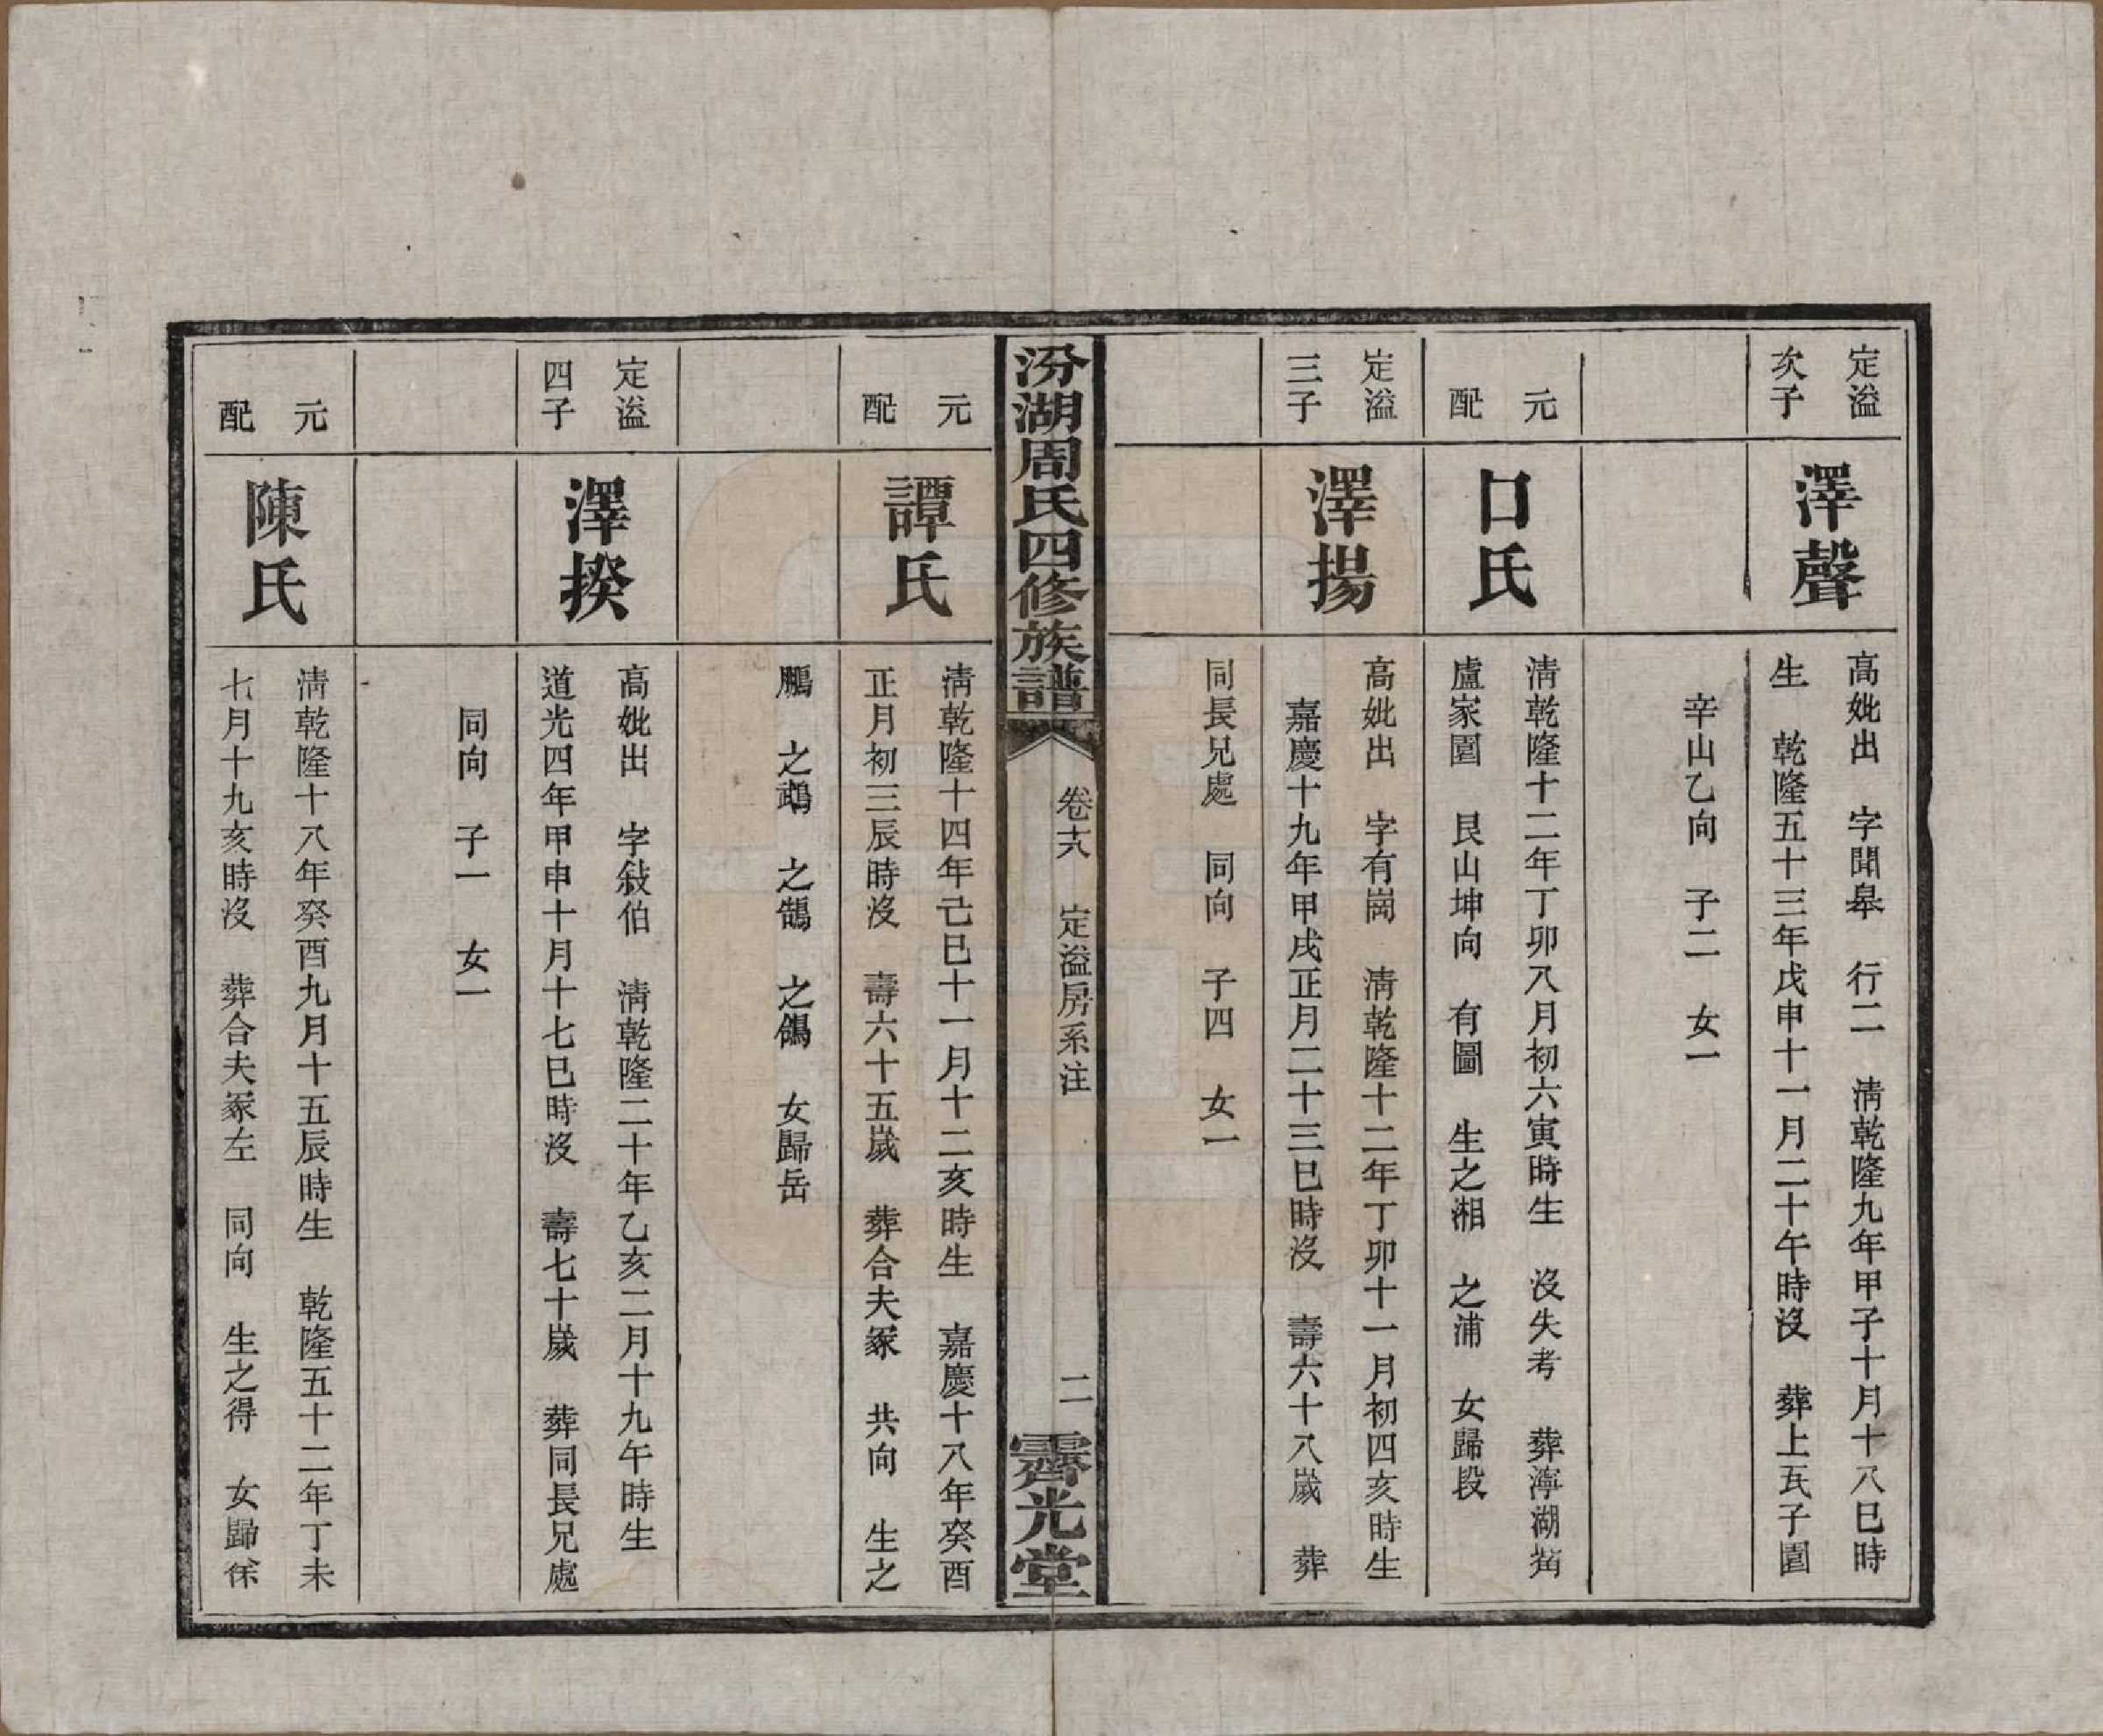 定溢
次子
澤聲
高妣出　字聞皋　行二　清乾隆九年甲子十月十八巳時
生　乾隆五十三年戊申十一月二十午時沒　葬上瓦子園
辛山乙向　子二　女一
元
配
口氏
清乾隆十二年丁卯八月初六寅時生　沒失考　葬濘湖㘰
盧家園　艮山坤向　有圖　生之湘　之浦　女歸段
定溢
三子
澤揚
高妣出　字有崗　清乾隆十二年丁卯十一月初四亥時生
嘉慶十九年甲戌正月二十三巳時沒　壽六十八歲　葬
同長兄處　同向　子四　女一
汾湖周氏四修族譜
卷十六　定溢房系注
二
霽光堂
元
配
譚氏
清乾隆十四年己巳十一月十二亥時生　嘉慶十八年癸酉
正月初三辰時沒　壽六十五歲　葬合夫冢　共向　生之
鵬　之鵡　之鵠　之鵅　女歸岳
定溢
四子
澤揆
高妣出　字敍伯　清乾隆二十年乙亥二月十九午時生
道光四年甲申十月十七巳時沒　壽七十歲　葬同長兄處
同向　子一　女一
元
配
陳氏
清乾隆十八年癸酉九月十五辰時生　乾隆五十二年丁未
七月十九亥時沒　葬合夫冢左　同向　生之得　女歸徐